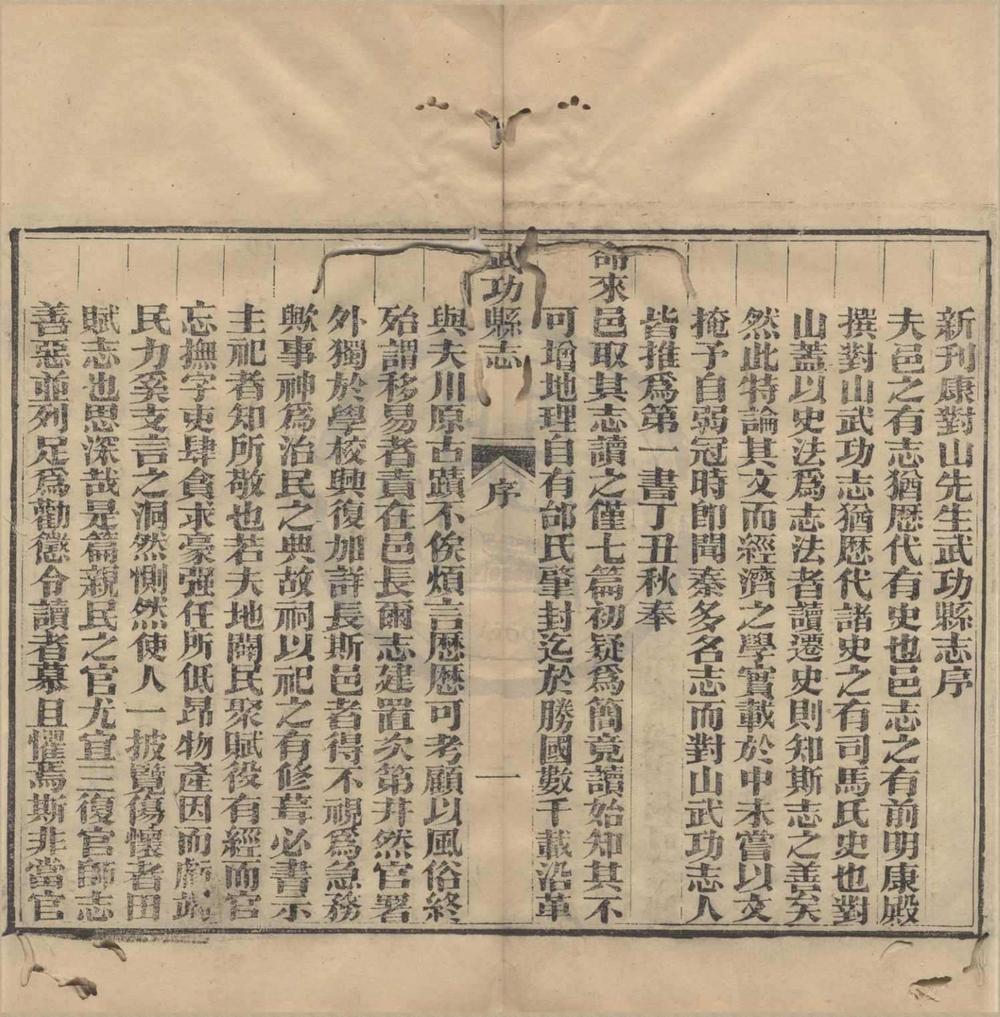 新刊康對山先生武功縣志序
夫邑之有志猶歴代有史也邑志之有前明康殿
撰對山武功志猶歴代諸史之有司馬氏史也對
山蓋以史法爲志法者讀遷史則知斯志之善矣
然此特論其文而經濟之學實載於中未嘗以文
掩予自弱冠時即聞秦多名志而對山武功志人
皆推爲第一書丁丑秋奉
命來邑取其志讀之僅七篇初疑爲簡竟讀始知其不
可增地理自有邰氏肇封迄於勝國數千載沿革
武功縣志
序
一
與夫川原古蹟不俟煩言歴歴可考顧以風俗終
殆謂移易者責在邑長爾志建置次第井然官署
外獨於學校興復加詳長斯邑者得不視爲急務
歟事神爲治民之典故祠以祀之有修葺必書示
主祀者知所敬也若夫地闢民聚賦役有經而官
忘撫字吏肆貪求豪强任所低昂物產因而虧
民力奚支言之洞然惻然使人一披覽傷懷者田
賦志也思深哉是篇親民之官尤宜三復官師志
善惡並列足爲勸懲令讀者慕且懼焉斯非當官